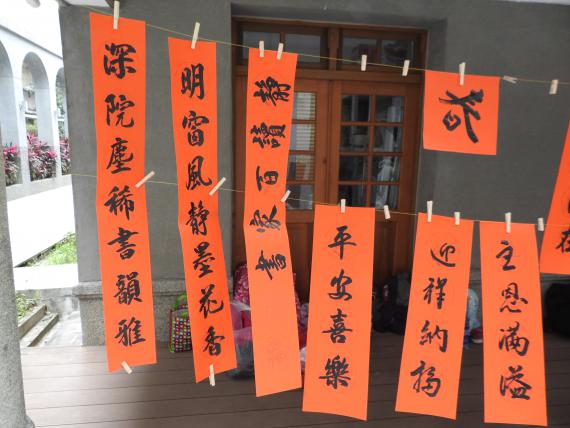 深院塵稀書韻雅
明窗風靜墨花香
靜讀百家書
狗
平安喜樂
迎祥納福
主恩滿溢